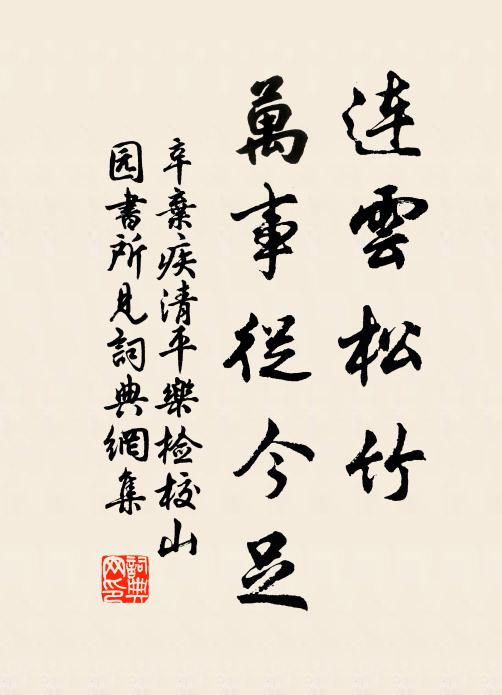 連雲松竹
萬事從今足
辛棄疾清平樂检校山
园書所見詞典網集
詞典网印